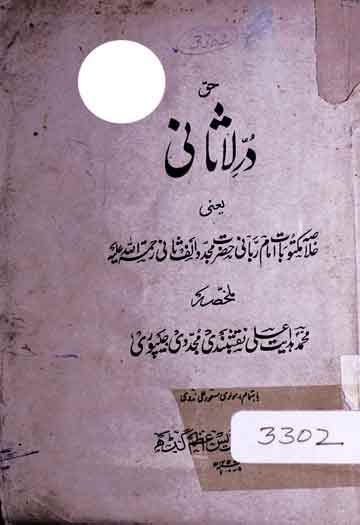 3302
حق
دُرِّ لاثانی
یعنی
خلاصہ مکتوبات امام ربانی حضرت مجدد الف ثانی رحمۃ اللہ علیہ
ملخصہ
محمد ہدایت علی نقشبندی مجددی جیپوری
باہتمام مولوی مسعود علی ندوی
پریس اعظم گڈھ
3302